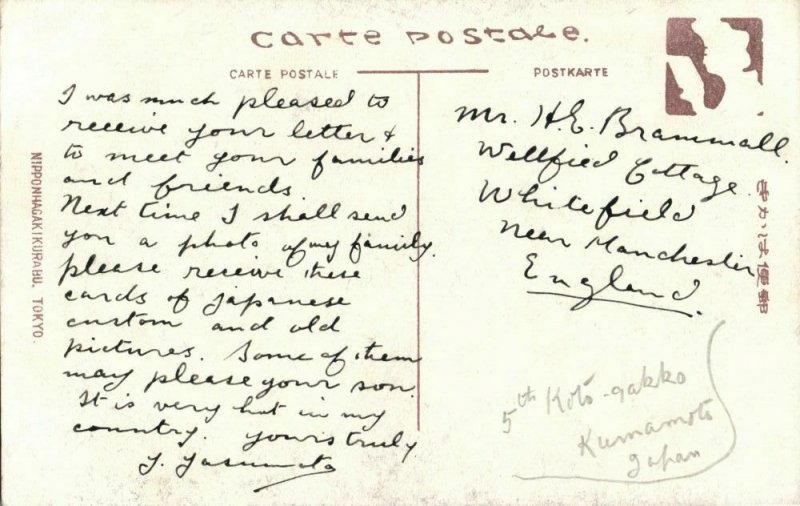 Carte postale.
CARTE POSTALE
POSTKARTE
I was much pleased to
receive your letter &
to meet your families
and friends
Next time I shall send
you a photo of my family.
please receive these
cards of Japanese
custom and old
pictures. Some of them
may please your son.
It is very hot in my
country. yours truly
Y. Yasumoto
Mr. H.E. Brammall.
Wellfied Cottage
Whitefield
near Manchester
England.
5th Kotō-gakko
Kumamoto
Japan
NIPPONHAGAKIKURABU, TOKYO.
きかは便郵